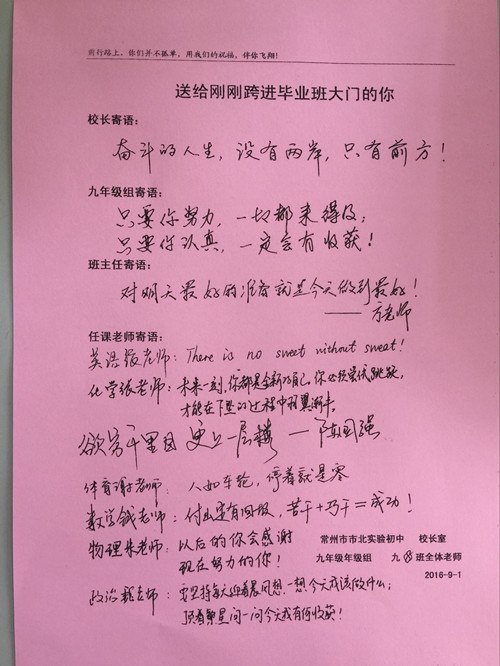 前行路上，你们并不孤单，用我们的祝福，伴你飞翔！
送给刚刚跨进毕业班大门的你
校长寄语：
奋斗的人生，没有两岸，只有前方！
九年级组寄语：
只要你努力，一切都来得及；
只要你认真，一定会有收获！
班主任寄语：
对明天最好的准备就是今天做到最好！
——方老师
任课老师寄语：
英语 老师：There is no sweet without sweat！
化学张老师：未来一刻，你都是全新的自己，你必须尝试跳跃，
才能在下坠的过程中羽翼渐丰。
欲穷千里目 更上一层楼 —陈国强
体育谢老师：人如车轮，停着就是零
数学钱老师：付出定有回报，苦干+巧干=成功！
物理朱老师：以后的你会感谢
现在努力的你！
常州市市北实验初中 校长室
九年级年级组 九⑧班全体老师
2016-9-1
政治 老师：要坚持每天迎着晨风想一想今天我该做什么；
顶着繁星问一问今天我有何收获！